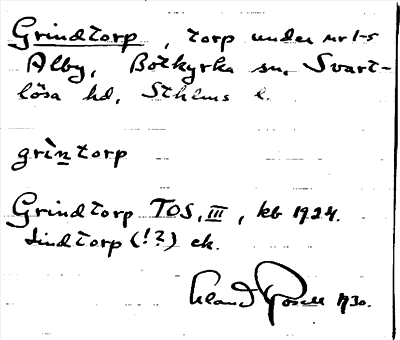 Grindtorp, torp under nr 1-5
Alby, Botkyrka sn, Svart-
lösa hd, Sthlms l.
grìntorp
Grindtorp TOS, III, kb 1924.
Lindtorp (!?) ek.
Erland Rosell 1930.